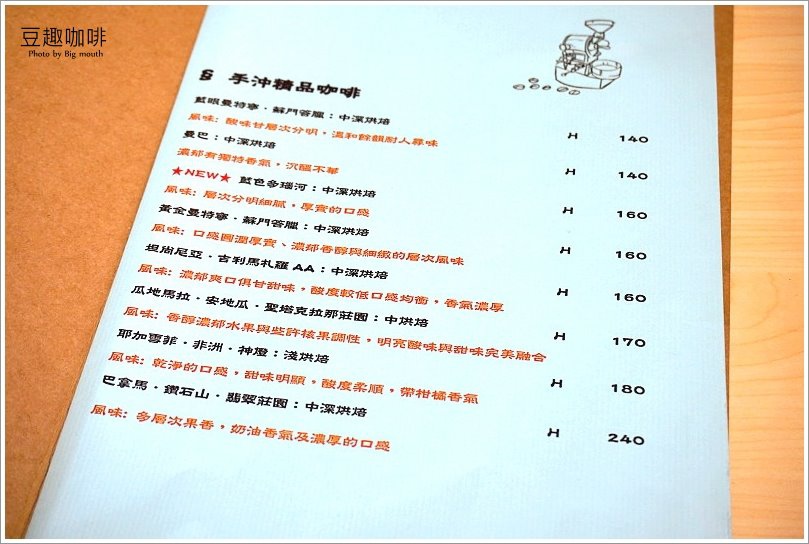 豆趣咖啡
Photo by Big mouth
手沖精品咖啡
藍眼曼特寧·蘇門答臘：中深烘焙 H 140
風味：酸味甘層次分明，溫和餘韻耐人尋味
曼巴：中深烘焙 H 140
濃郁有獨特香氣，沉醞不華
★NEW★ 藍色多瑙河：中深烘焙 H 160
風味：層次分明細膩，厚實的口感
黃金曼特寧·蘇門答臘：中深烘焙 H 160
風味：口感圓潤厚實、濃郁香醇與細緻的層次風味
坦尚尼亞·吉利馬札羅AA：中深烘焙 H 160
風味：濃郁爽口俱甘甜味，酸度較低口感均衡，香氣濃厚
瓜地馬拉·安地瓜·聖塔克拉那莊園：中烘焙 H 170
風味：香醇濃郁水果與些許核果調性，明亮酸味與甜味完美融合
耶加雪菲·非洲·神燈：淺烘焙 H 180
風味：乾淨的口感，甜味明顯，酸度柔順，帶柑橘香氣
巴拿馬·鑽石山·翡翠莊園：中深烘焙 H 240
風味：多層次果香，奶油香氣及濃厚的口感